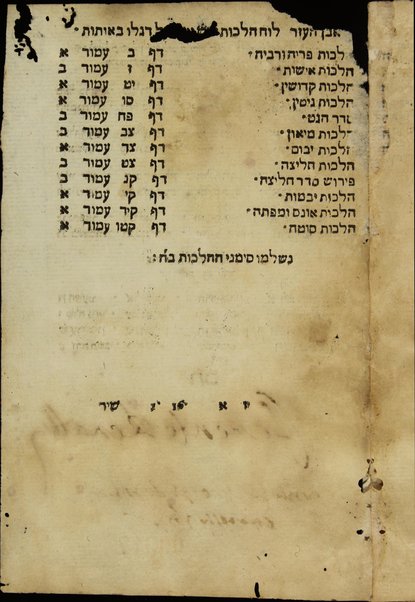 אבן העזר לוח הלכות דגלו באותות
לכות פריה ורביה דף ב עמוד א
הלכות אישות דף ז עמוד ב
הלכות קדושין דף יט עמוד א
הלכות גיטין דף סו עמוד א
סדר הגט דף פח עמוד ב
הלכות מיאון דף צב עמוד ב
הלכות יבום דף צד עמוד א
הלכות חליצה דף צט עמוד ב
פירוש סדר חליצה דף קנ עמוד ב
הלכות יבמות דף קי עמוד א
הלכות אונס ומפתה דף קיד עמוד א
הלכות סוטה דף קטו עמוד א
נשלמו סימני ההלכות בח :
א שיר